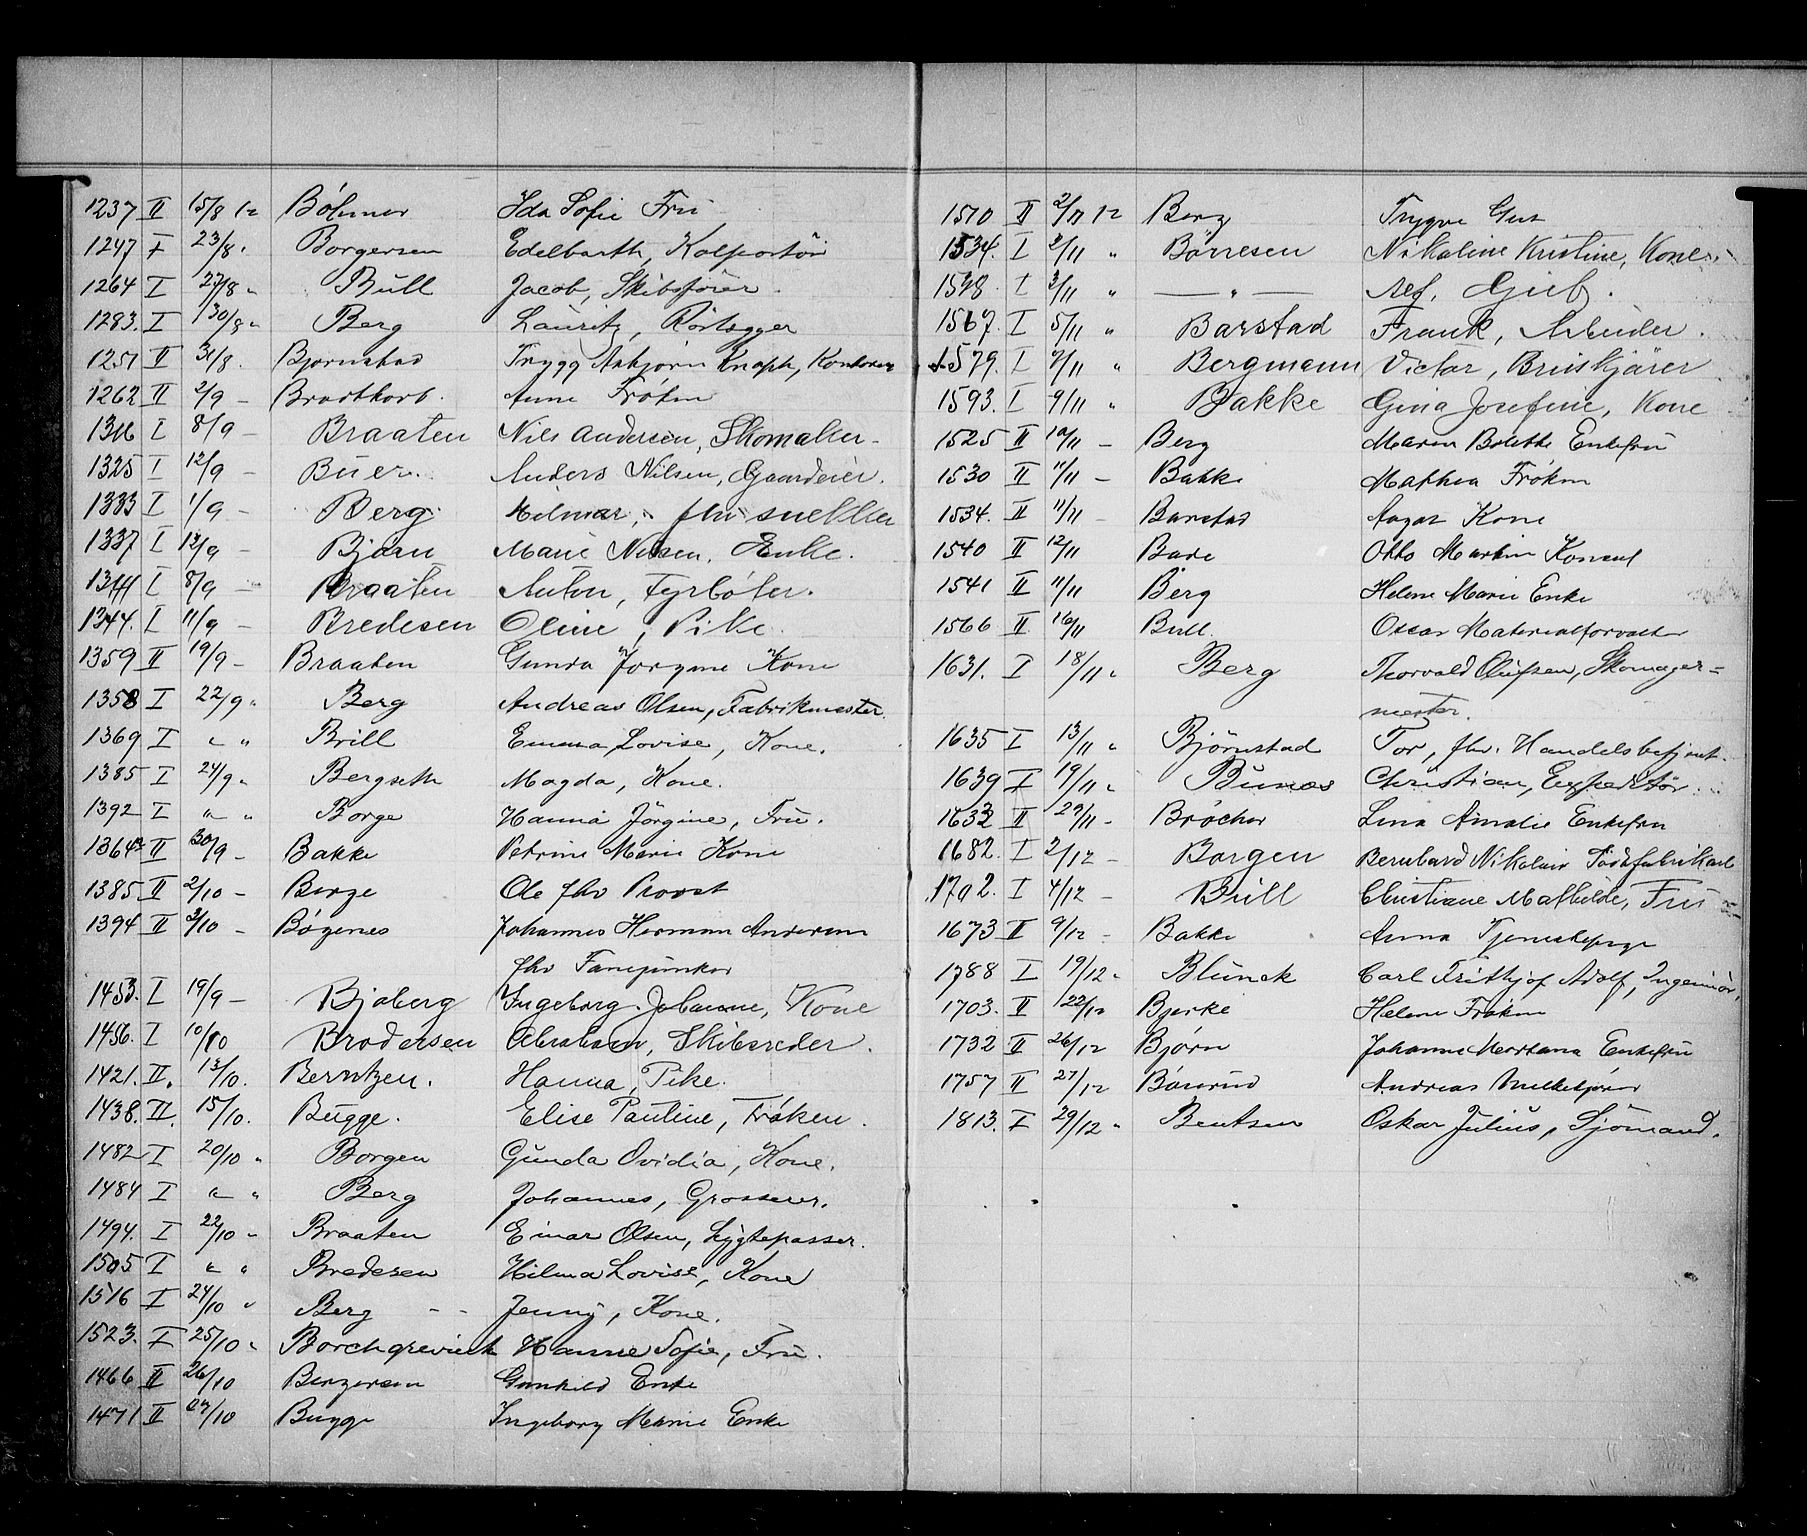 1237 II 15/8 12 Böhmer Ida Sofie Fru
1247 I 23/8 " Borgersen Edelbarth, Kolportör
1264 I 27/8 " Bull Jacob, Skibsförer.
1283. I 30/8 " Berg Lauritz, Rörlegger
1251 II 31/8. Bjørnstad Trygg Asbjørn Knoph, Kontorm
1262 II 2/9 - Bradtkorb. Anne Frøken
1316 I 8/9 - Braaten Nils Andersen, Skomaker.
1325 I 12/9 - Buer. Anders Nilsen, Gaardeier.
1333 I 1/9 - Berg. Hilmar, fhv
1337 I 12/9 - Bjørn Marie Nilsen, Enke.
I 8/9 - Braaten Anton, Fyrbøter.
1344. I 11/9 - Bredesen Oline, Pike.
1359 II 19/9 - Braaten Gunda Jørgine Kone
1358 I 22/9 " Berg Andreas Olsen, Fabrikmester.
1369 I " " Brill Emma Lovise, Kone.
1385 I 24/9 " Bergseth Magda, Kone.
1392 I " " Borge Hanna Jörgine, Fru.
1364 II 30/9 - Bakke Petrine Marie Kone
1385 II 2/10 - Berge Ole fhv Provst
1394 II 3/10 - Bøgenes Johannes Herman Andersen
fhv Fanejunker
1453. I 19/9 - Bjaberg Ingeborg Johanne, Kone
1456. I 10/10 Brodersen Abraham, Skibsreder.
1421. II. 13/10. Berntzen. Hanna, Pike.
1438. II. 15/10. Bugge. Elise Pauline, Frøken.
1482 I 20/10 " Borgen Gunda Ovidia, Kone.
1484 I " " Berg Johannes, Grosserer.
1494. I 22/10 " Braaten Einar Olsen, Lygtepasser.
1505 I " " Bredesen Hilma Lovise, Kone
1516 I 24/10 " Berg - - Jenny, Kone.
1523. I 25/10 " Borchgrevink Hanne Sofie, Fru.
1466 II 26/10 Bergersen Gunhild Enke
1471 II 27/10 Bugge Ingeborg Marie Enke
1510 II 2/11 12 Berg Trygve Gut
1534. I 2/11 " Børresen Nikoline Kristine, Kone.
1538 I 3/11 " — " — Alf, Gut.
1567. I 5/11 " Barstad Frank, Arbeider.
1579. I 7/11 " Bergmann Victor, Bruskjører
1593. I 9/11 " Bakke Gina Josefine, Kone
1525 II 10/11 - Berg Maren Bolette Enkefru
1530 II 11/11 - Bakke Mathea Frøken
1534. II 11/11 - Barstad Aagot Kone
1540 II 12/11 Bade Otto Martin Konsul
1541 II 11/11 Berg Helene Marie Enke
1566 II. 16/11 Bull. Oscar Materialforvalter
1631. I 18/11 " Berg Thorvald Olufsen, Skomager-
mester.
1635 I 13/11 " Bjørnstad Tor, fhv. Handelsbetjent.
1639 I 19/11 " Bunæs Christian, Expeditør.
1632 II 29/11 - Brøcher Lina Amalie Enkefru
1682. I 2/12 - Borgen Bernhard Nikolai,
1702. I 4/12 - Bull Christiane Mathilde, Fru
1673 II 9/12 - Bakke Anna Tjenestepige
1788 I 19/12 " Blunck Carl Frithjof Adolf, Ingeniør.
1703. II 22/12 Bjerke Helene Frøken
1732 II 26/12 Bjørn Johanne Enkefru
1757 II 27/12 Andreas
1813. I 29/12 " Bentsen Oskar Julius, Sjömand.